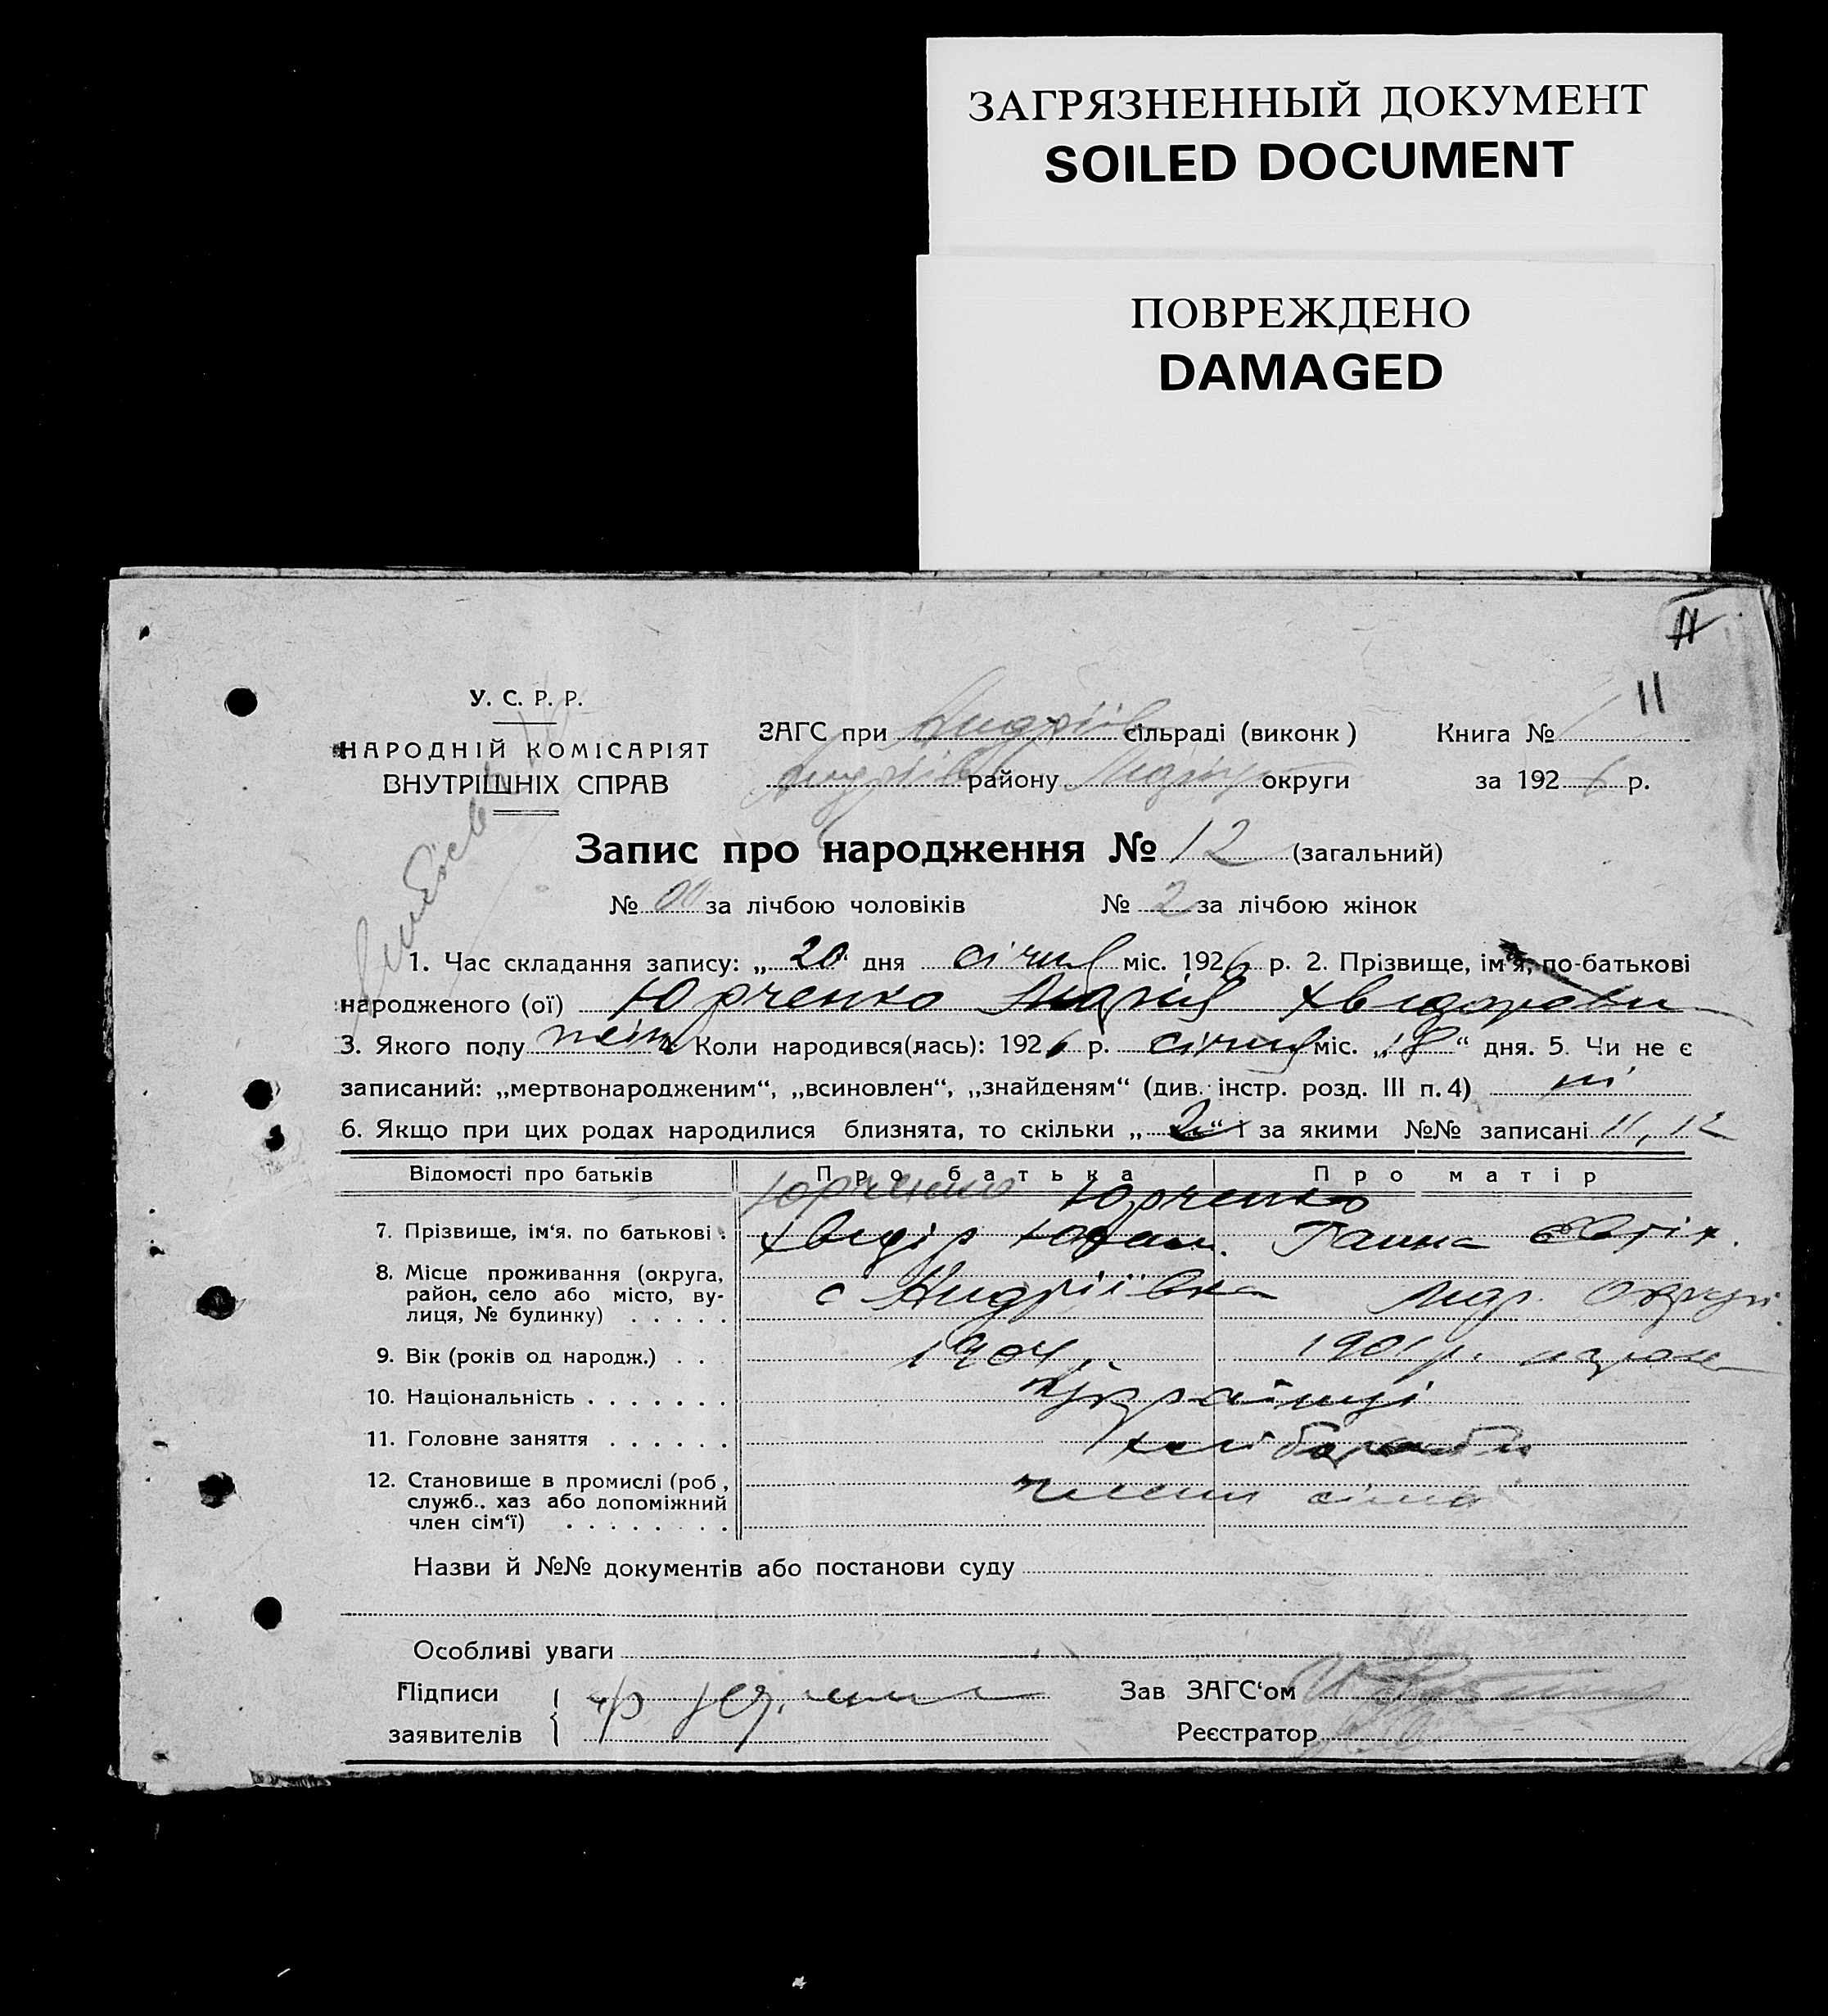 ЗАГРЯЗНЕННЫЙ ДОКУМЕНТ
SOILED DOCUMENT
ПОВРЕЖДЕНО
DAMAGED
11
У. С. Р. Р.
НАРОДНІЙ КОМІСАРІЯТ
ВНУТРІШНІХ СПРАВ
ЗАГС при Андріїв сільраді (виконк) Книга № 1
Андріїв району округи за 1926 р.
Запис про народження № 12 (загальний)
№ 00 за лічбою чоловіків № 2 за лічбою жінок
1. Час складання запису: „ 20 дня січня міс. 1926 р. 2. Прізвище, ім'я, по-батькові
народженого (ої) Юрченко Марія Хведоровн
3. Якого полу Коли народився(лась): 1926 р. січня міс. „18“ дня. 5. Чи не є
записаний: „мертвонародженим“, „всиновлен“, „знайденям“ (див. інстр. розд. III п. 4) ні
6. Якщо при цих родах народилися близнята, то скільки „ 2 “ і за якими №№ записані 11, 12
Відомості про батьків Про батька Про матір
Юрченко Юрченко
7. Прізвище, ім'я. по батькові: Хведір Ганна Євтіх.
8. Місце проживання (округа,
район, село або місто, ву-
лиця, № будинку) . . . . . с Андріївка округи
9. Вік (років од народж.) . . 1904 1901 р.
10. Національність . . . . . . . Українці
11. Головне заняття . . . . . . хлібороби
12. Становище в промислі (роб,
служб.. хаз або допоміжний
член сім'ї) . . . . . . . . члени
Назви й №№ документів або постанови суду
Особливі уваги
Підписи
заявителів
Зав ЗАГС'ом
Реєстратор